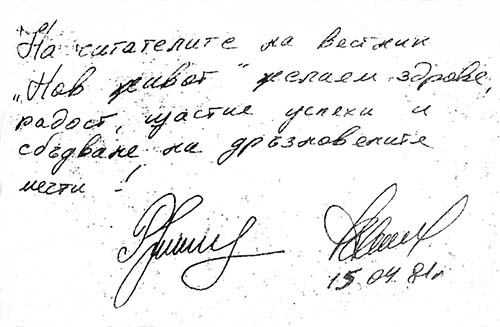 На читателите на вестник
„Нов живот" желаем здраве,
радост, щастие успехи и
сбъдване на дръзновените
мечти!
15.04.81г.